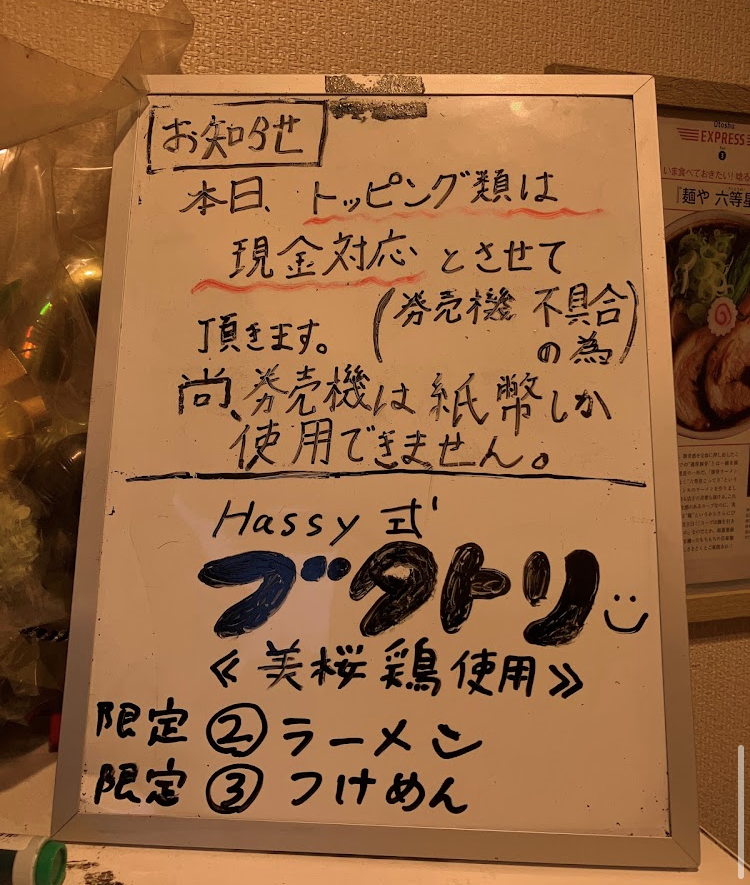 お知らせ
本日、トッピング類は
現金対応とさせて
頂きます。(券売機 不具合
の為)
尚、券売機は紙幣しか
使用できません。
Hassy 式
ブタトリ
《美桜鶏使用》
限定②ラーメン
限定③つけめん
EXPRESS
いま食べておきたい!
『麺や 六等星